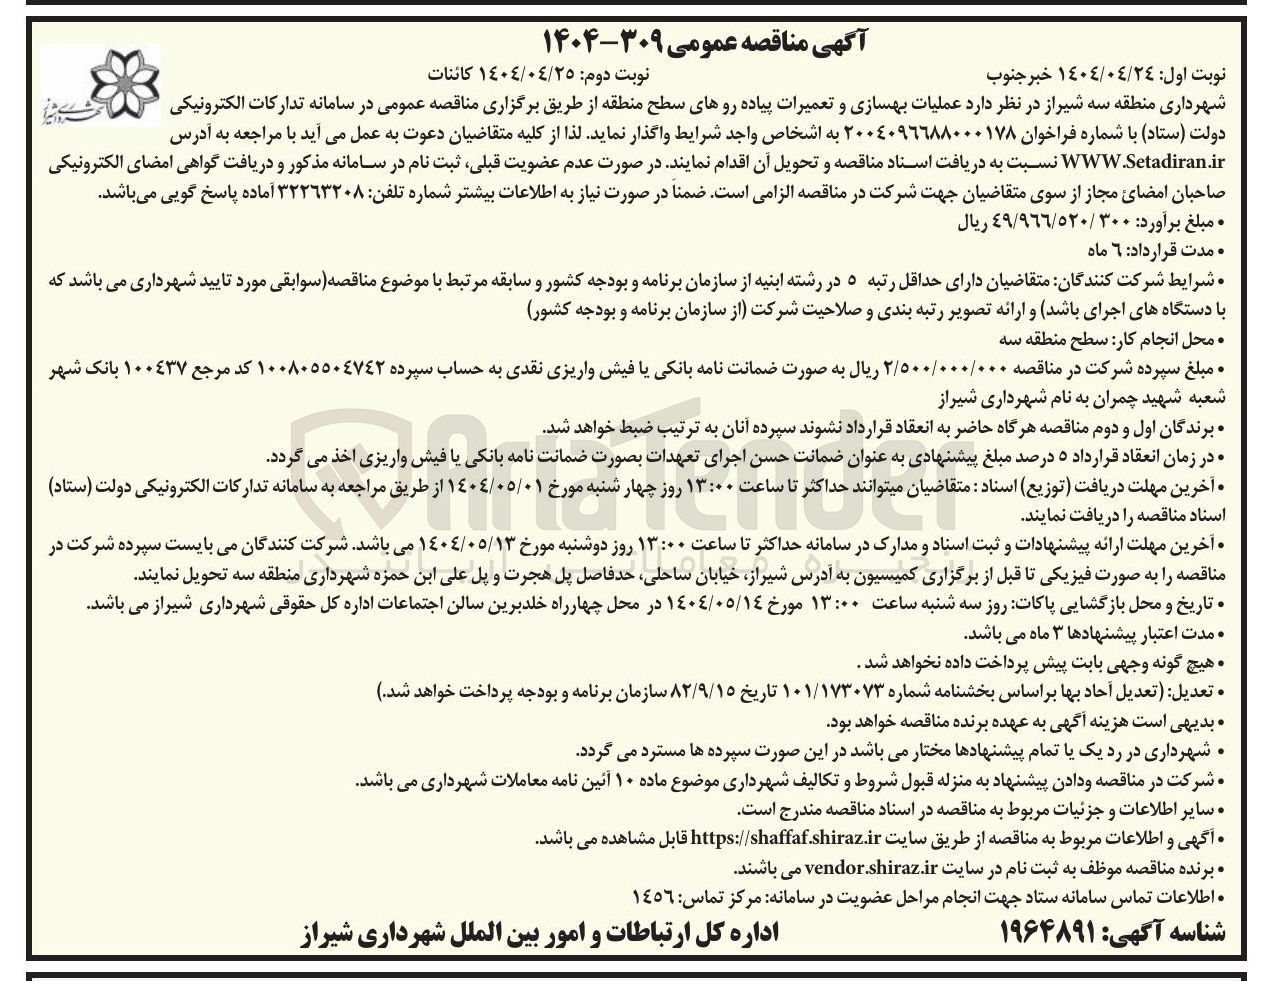 آگهی مناقصه عمومی ۳۰۹-۱۴۰۴
نوبت اول: ۱۴۰۴/۰۴/۲۴ خبرجنوب نوبت دوم: ۱۴۰۴/۰۴/۲۵ کائنات
شهرداری منطقه سه شیراز در نظر دارد عملیات بهسازی و تعمیرات پیاده رو های سطح منطقه از طریق برگزاری مناقصه عمومی در سامانه تدارکات الکترونیکی
دولت (ستاد) با شماره فراخوان ۲۰۰۴۰۹۶۶۸۸۰۰۰۱۷۸ به اشخاص واجد شرایط واگذار نماید. لذا از کلیه متقاضیان دعوت به عمل می آید با مراجعه به آدرس
WWW.Setadiran.ir نسبت به دریافت اسناد مناقصه و تحویل آن اقدام نمایند. در صورت عدم عضویت قبلی، ثبت نام در سامانه مذکور و دریافت گواهی امضای الکترونیکی
صاحبان امضائ مجاز از سوی متقاضیان جهت شرکت در مناقصه الزامی است. ضمناً در صورت نیاز به اطلاعات بیشتر شماره تلفن: ۳۲۲۶۳۲۰۸ آماده پاسخ گویی می‌باشد.
• مبلغ برآورد: ۴۹/۹۶۶/۵۲۰/۳۰۰ ریال
• مدت قرارداد: ۶ ماه
• شرایط شرکت کنندگان: متقاضیان دارای حداقل رتبه ۵ در رشته ابنیه از سازمان برنامه و بودجه کشور و سابقه مرتبط با موضوع مناقصه(سوابقی مورد تایید شهرداری می باشد که
با دستگاه های اجرای باشد) و ارائه تصویر رتبه بندی و صلاحیت شرکت (از سازمان برنامه و بودجه کشور)
• محل انجام کار: سطح منطقه سه
• مبلغ سپرده شرکت در مناقصه ۲/۵۰۰/۰۰۰/۰۰۰ ریال به صورت ضمانت نامه بانکی یا فیش واریزی نقدی به حساب سپرده ۱۰۰۸۰۵۵۰۴۷۴۲ کد مرجع ۱۰۰۴۳۷ بانک شهر
شعبه شهید چمران به نام شهرداری شیراز
• برندگان اول و دوم مناقصه هرگاه حاضر به انعقاد قرارداد نشوند سپرده آنان به ترتیب ضبط خواهد شد.
• در زمان انعقاد قرارداد ۵ درصد مبلغ پیشنهادی به عنوان ضمانت حسن اجرای تعهدات بصورت ضمانت نامه بانکی یا فیش واریزی اخذ می گردد.
• آخرین مهلت دریافت (توزیع) اسناد : متقاضیان میتوانند حداکثر تا ساعت ۱۳:۰۰ روز چهار شنبه مورخ ۱۴۰۴/۰۵/۰۱ از طریق مراجعه به سامانه تدارکات الکترونیکی دولت (ستاد)
اسناد مناقصه را دریافت نمایند.
• آخرین مهلت ارائه پیشنهادات و ثبت اسناد و مدارک در سامانه حداکثر تا ساعت ۱۳:۰۰ روز دوشنبه مورخ ۱۴۰۴/۰۵/۱۳ می باشد. شرکت کنندگان می بایست سپرده شرکت در
مناقصه را به صورت فیزیکی تا قبل از برگزاری کمیسیون به آدرس شیراز، خیابان ساحلی، حدفاصل پل هجرت و پل علی ابن حمزه شهرداری منطقه سه تحویل نمایند.
• تاریخ و محل بازگشایی پاکات: روز سه شنبه ساعت ۱۳:۰۰ مورخ ۱۴۰۴/۰۵/۱۴ در محل چهارراه خلدبرین سالن اجتماعات اداره کل حقوقی شهرداری شیراز می باشد.
• مدت اعتبار پیشنهادها ۳ ماه می باشد.
• هیچ گونه وجهی بابت پیش پرداخت داده نخواهد شد .
• تعدیل: (تعدیل آحاد بها براساس بخشنامه شماره ۱۰۱/۱۷۳۰۷۳ تاریخ ۸۲/۹/۱۵ سازمان برنامه و بودجه پرداخت خواهد شد.)
• بدیهی است هزینه آگهی به عهده برنده مناقصه خواهد بود.
• شهرداری در رد یک یا تمام پیشنهادها مختار می باشد در این صورت سپرده ها مسترد می گردد.
• شرکت در مناقصه ودادن پیشنهاد به منزله قبول شروط و تکالیف شهرداری موضوع ماده ۱۰ آئین نامه معاملات شهرداری می باشد.
• سایر اطلاعات و جزئیات مربوط به مناقصه در اسناد مناقصه مندرج است.
• آگهی و اطلاعات مربوط به مناقصه از طریق سایت https://shaffaf.shiraz.ir قابل مشاهده می باشد.
• برنده مناقصه موظف به ثبت نام در سایت vendor.shiraz.ir می باشند.
• اطلاعات تماس سامانه ستاد جهت انجام مراحل عضویت در سامانه: مرکز تماس: ۱۴۵۶
شناسه آگهی: ۱۹۶۴۸۹۱ اداره کل ارتباطات و امور بین الملل شهرداری شیراز
AriaTender